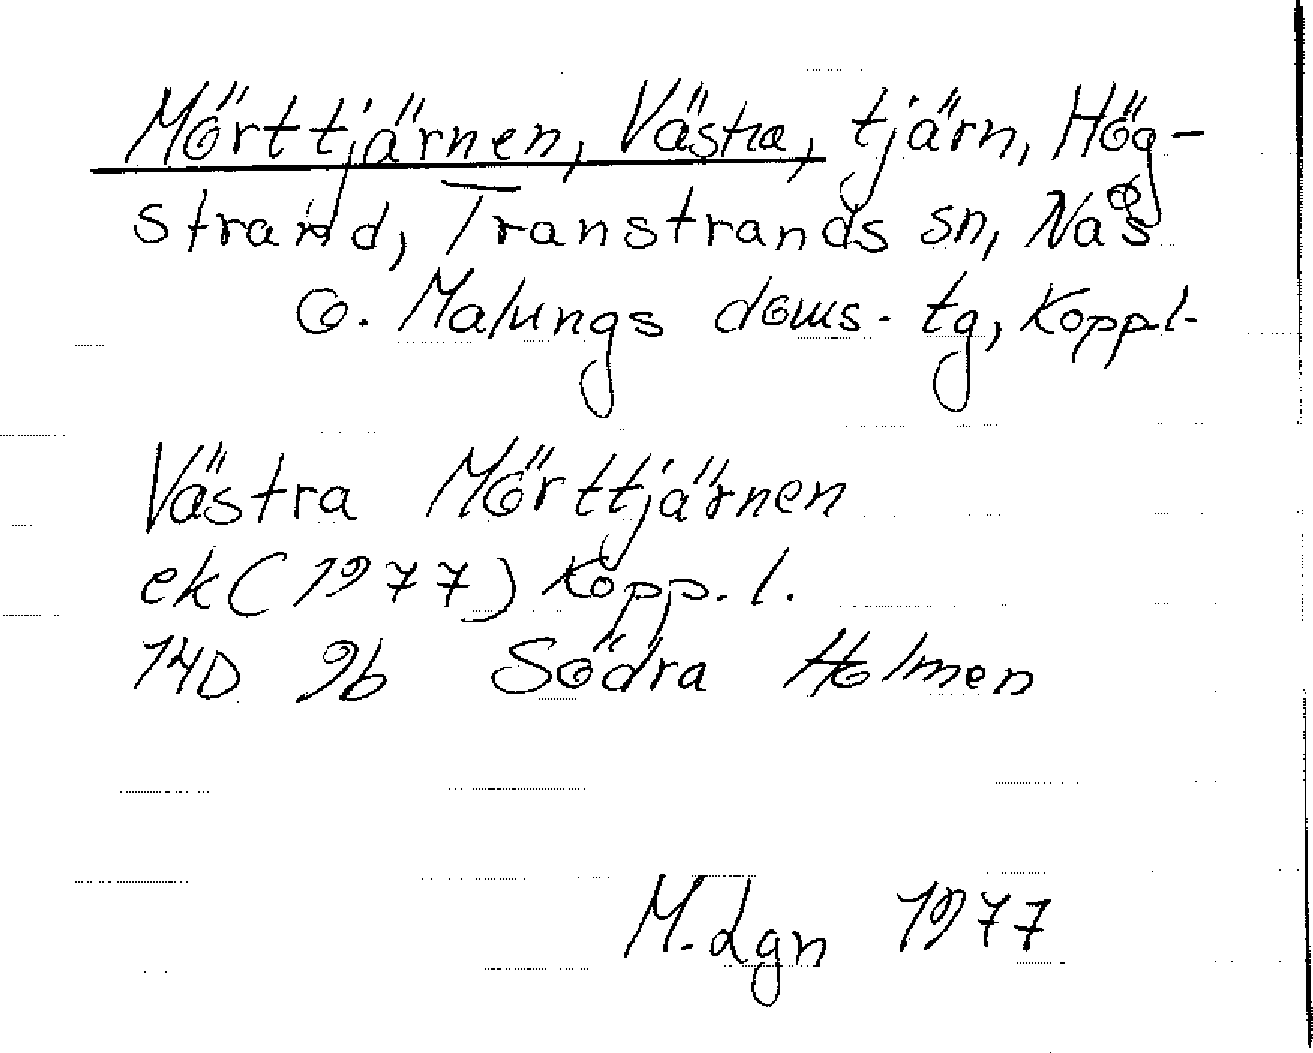 Mörttjärnen, Västra, tjärn, Hög-
strand, Transtrands sn, Nås
o. Malungs doms. tg, Kopp.l.
Västra Mörttjärnen
ek (1977) Kopp. l.
14D 9b Södra Holmen
M. Lgn 1977